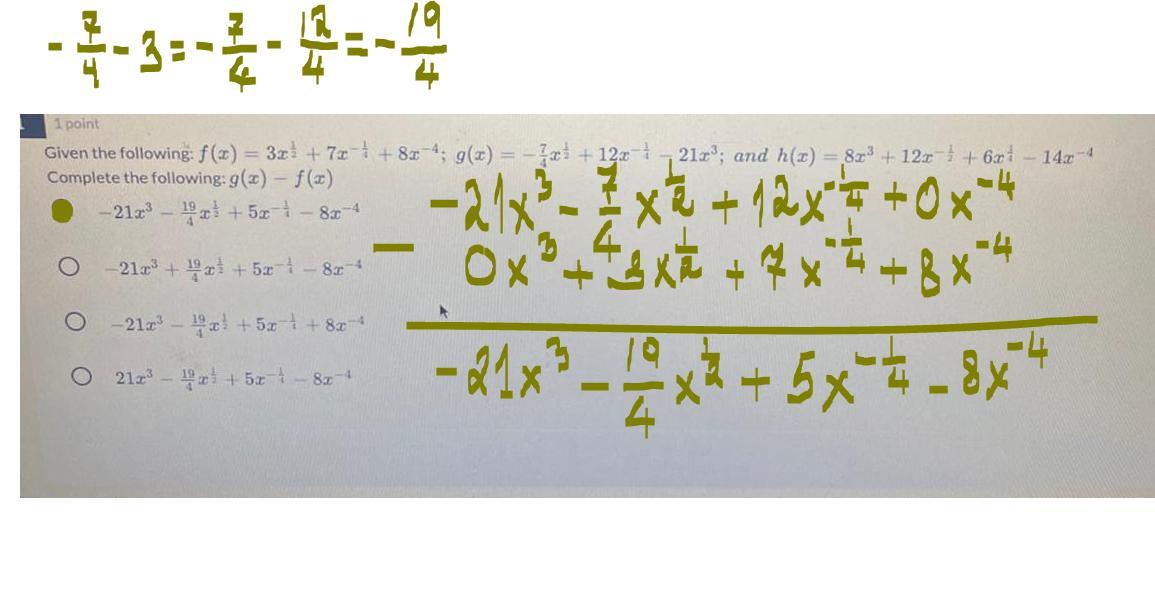 -7/4 - 3 = -7/4 - 12/4 = -19/4
1 point
Given the following: f(x) = 3x^{1/2} + 7x^{-1/4} + 8x^{-4}; g(x) = -7/4 x^{1/2} + 12x^{-1/4} - 21x^3; and h(x) = 8x^3 + 12x^{-1/2} + 6x^{1/4} - 14x^{-4}
Complete the following: g(x) - f(x)
-21x^3 - 19/4 x^{1/2} + 5x^{-1/4} - 8x^{-4}
-21x^3 - 7/4 x^{1/2} + 12x^{-1/4} + 0x^{-4}
- 0x^3 + 3x^{1/2} + 7x^{-1/4} + 8x^{-4}
-21x^3 + 19/4 x^{1/2} + 5x^{-1/4} - 8x^{-4}
-21x^3 - 19/4 x^{1/2} + 5x^{-1/4} + 8x^{-4}
-21x^3 - 19/4 x^{1/2} + 5x^{-1/4} - 8x^{-4}
21x^3 - 19/4 x^{1/2} + 5x^{-1/4} - 8x^{-4}